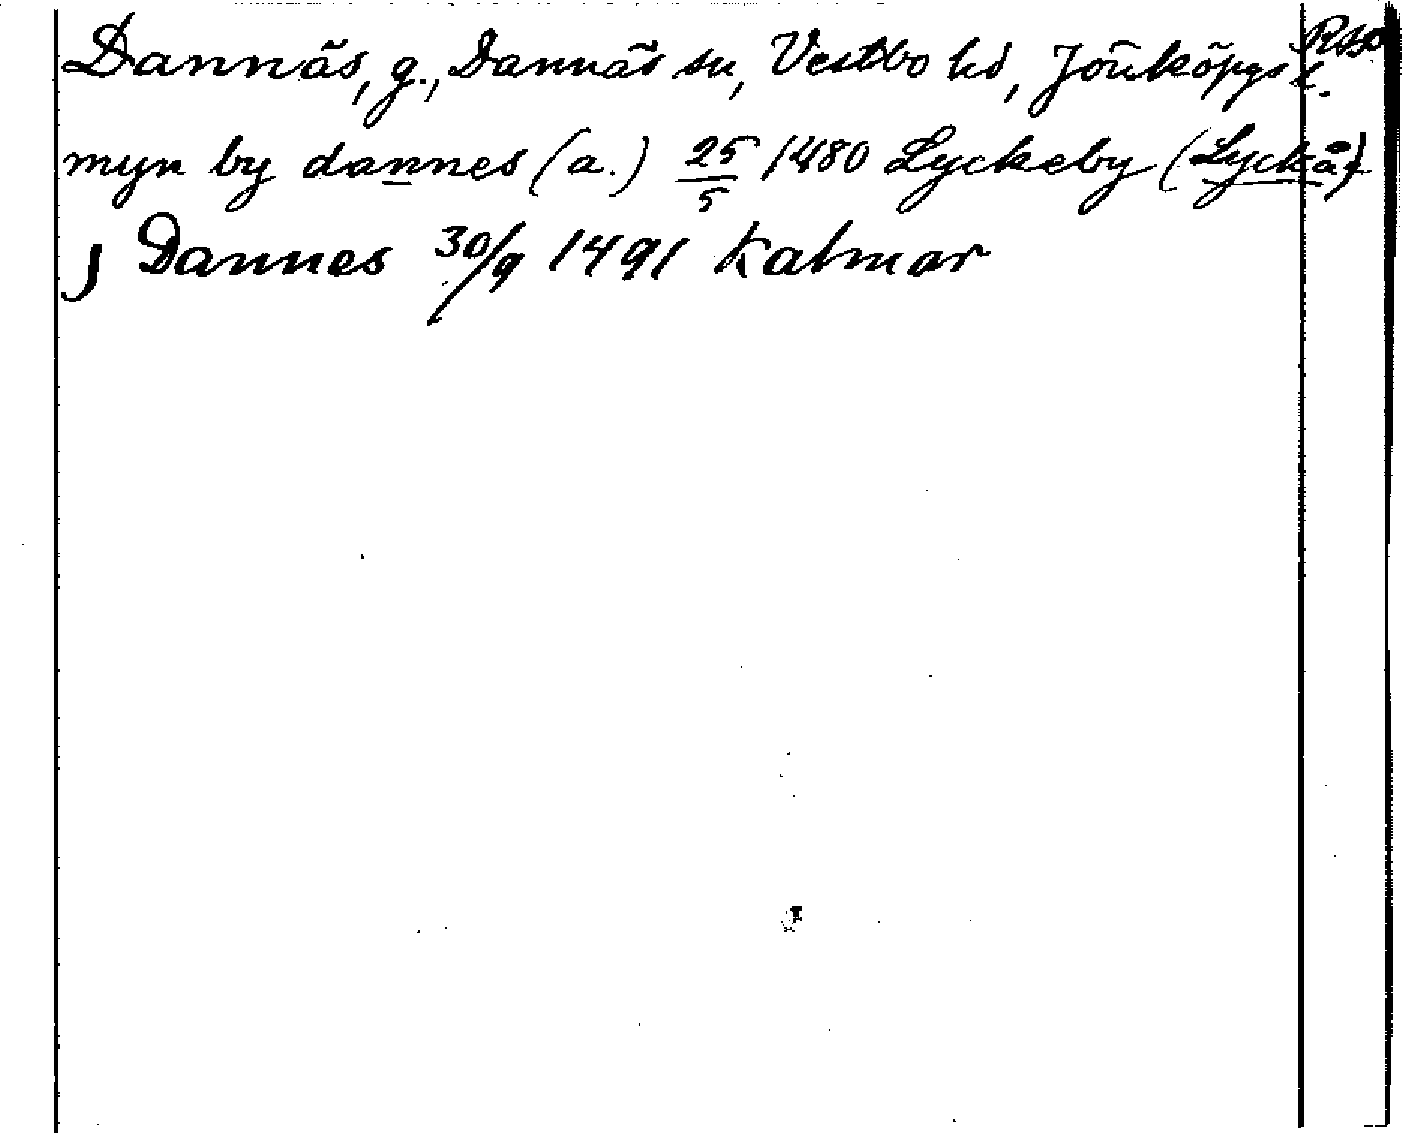 Dannäs, g., Dannäs sn, Vestbo hd, Jönköpgs l.
myn by dannes (a.) 25/5 1480 Lyckeby (Lyckå)
j Dannes 30/9 1491 Kalmar